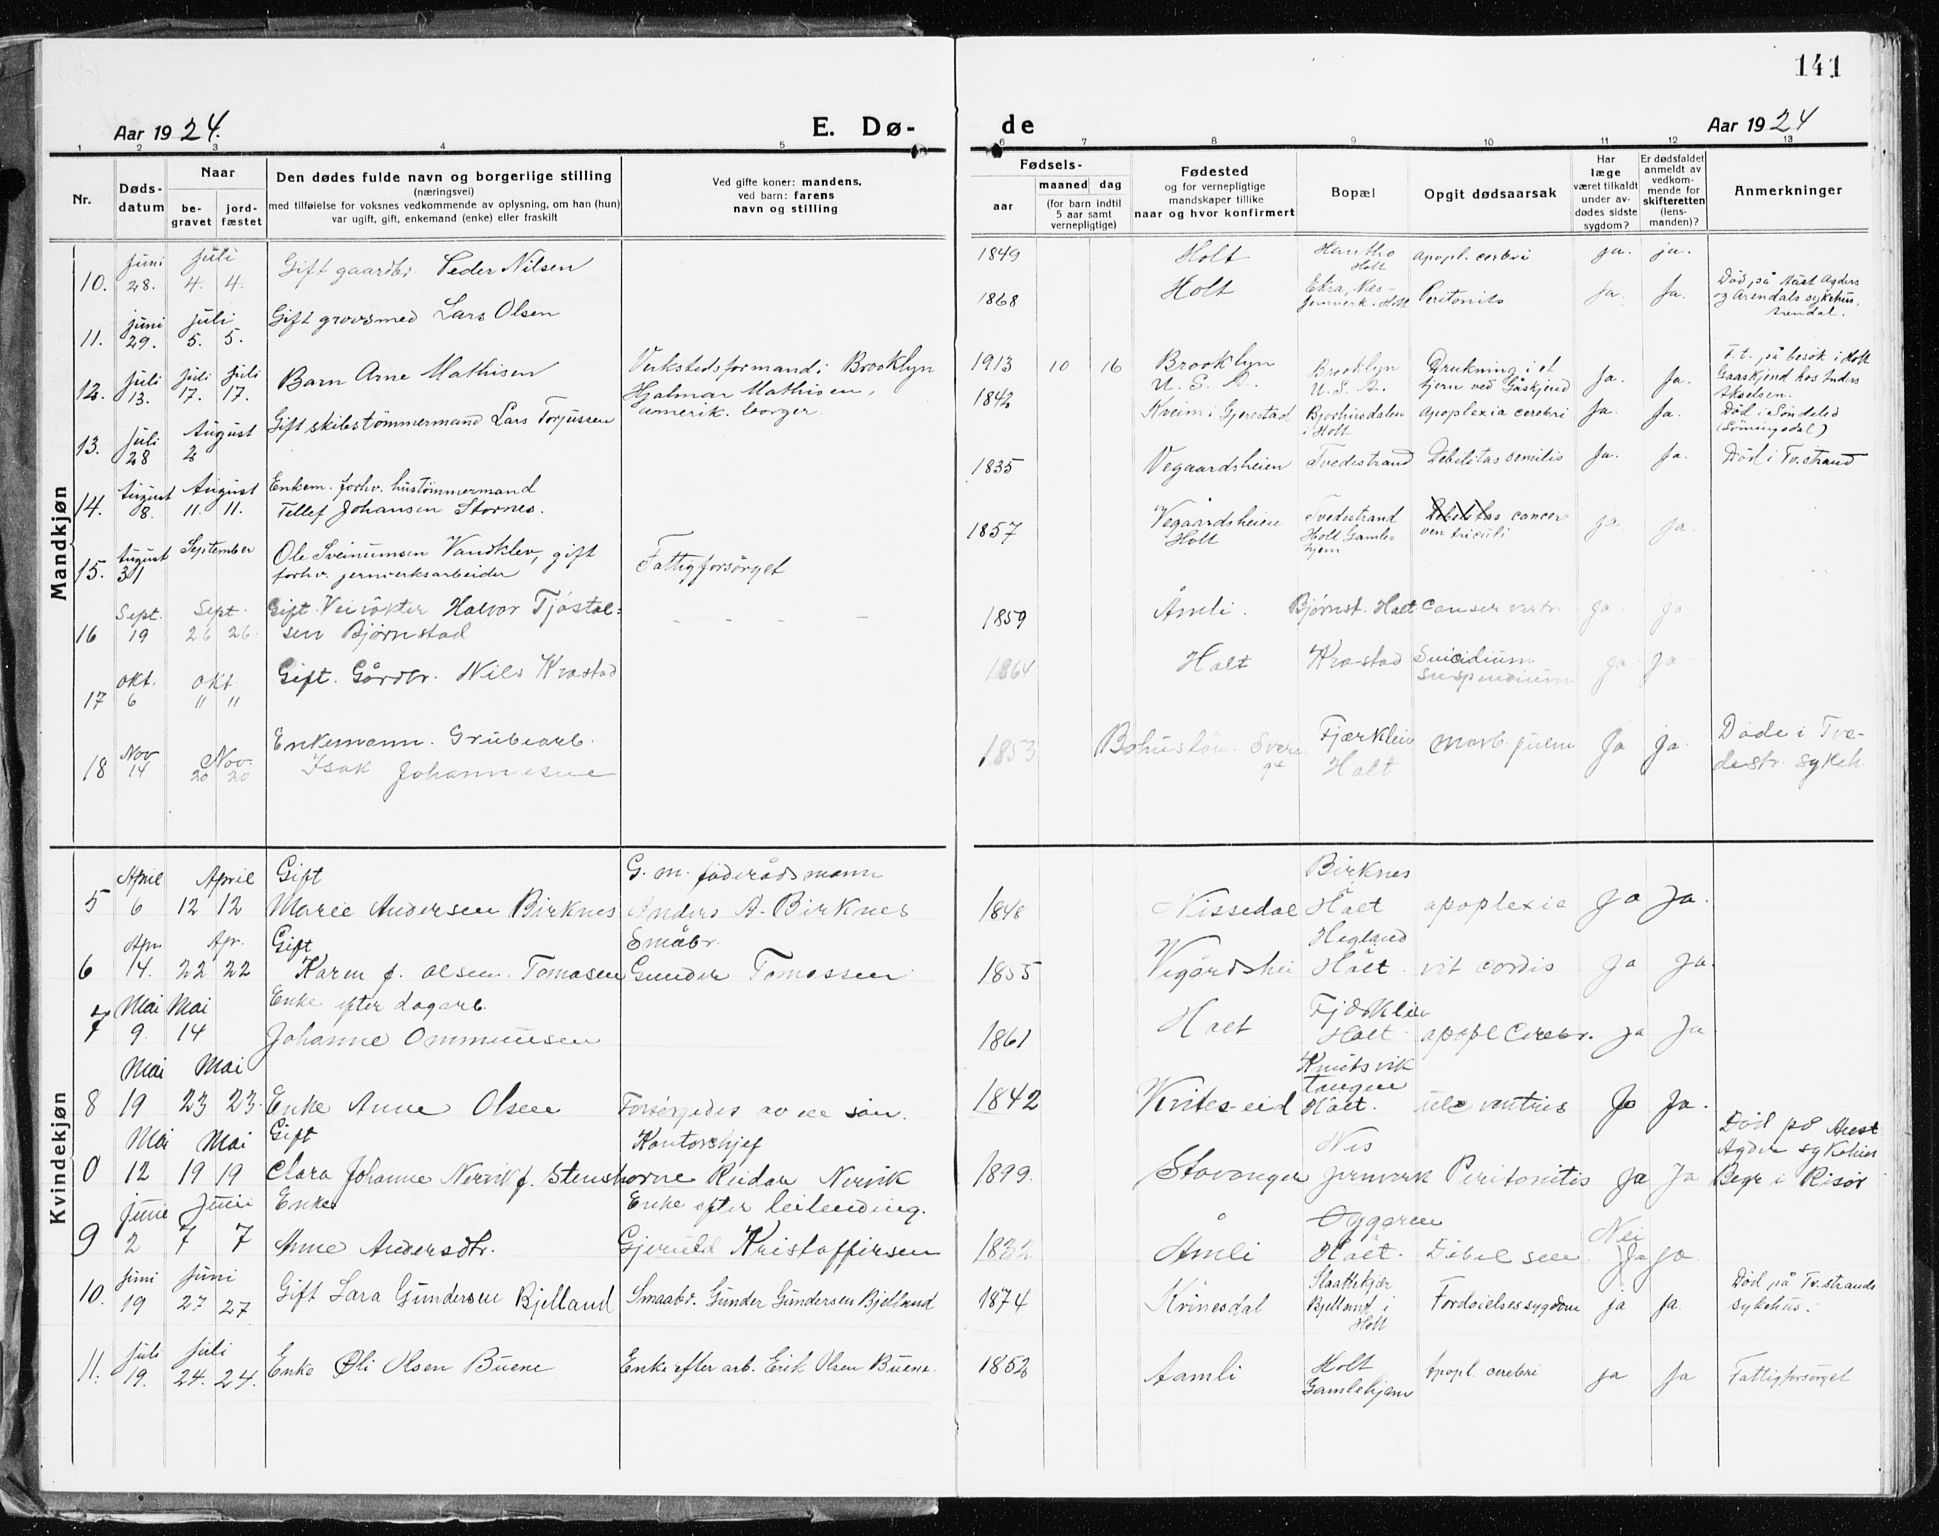 141
Aar 1924.
E. Dø-
de
Aar 1924
1 2 3 4 5 6 7 8 9 10 11 12 13
Nr.
Døds-
datum
Naar
be-
gravet
jord-
fæstet
Den dødes fulde navn og borgerlige stilling
(næringsvei)
med tilføielse for voksnes vedkommende av oplysning, om han (hun)
var ugift, gift, enkemand (enke) eller fraskilt
Ved gifte koner: mandens,
ved barn: farens
navn og stilling
Fødsels-
aar
maaned
dag
(for barn indtil
5 aar samt
vernepligtige)
Fødested
og for vernepligtige
mandskaper tillike
naar og hvor konfirmert
Bopæl
Opgit dødsaarsak
Har
læge
været tilkaldt
under av-
dødes sidste
sygdom?
Er dødsfaldet
anmeldt av
vedkom-
mende for
skifteretten
(lens-
manden)?
Anmerkninger
Mandkjøn
10.
Juni
28.
Juli
4. 4.
Gift gaardbr. Peder Nilsen
1849
Holt
Holt
Apopl. cerebri
ja. ja.
11.
Juni
29.
Juli
5. 5.
Gift grovsmed Lars Olsen
1868
Holt
Ekra, Næs
Jernverk. Holt
Peritonitis
Ja. Ja.
Død på Aust Agders
og Arendals sykehus,
Arendal.
12.
Juli
13.
Juli
17.
Juli
17.
Barn Arne Mathisen
Verkstedsformand i Brooklyn
Hjalmar Mathisen,
amerik. borger.
1913 10 16
Brooklyn
U. S. A.
Brooklyn
U. S. A.
Drukning i et
tjern ved Gåskjend
Ja. Ja.
F. t. på besøk i Holt
Gaaskjend hos Anders
Akselsen.
13.
Juli
28
August
2
Gift skibstømmermand Lars Torjussen
1842
Kveim i Gjerestad
Bjorhusdalen
i Holt
Apoplexia cerebri
Ja. Ja.
Død i Søndeled
14.
August
8.
August
11. 11.
Enkem. forhv. hustømmermand
Tellef Johansen Stornes.
1835
Vegaardsheien
Tvedestrand
Debilitas senilis
Ja. Ja.
Død i Tv.strand
15.
August
31
September
Ole Sveinumsen Vandklev, gift
forhv. jernverksarbeider
Fattigforsørget
1857
Vegaardsheien
Holt
Tvedestrand
Holt Gamle-
hjem
Debilitas cancer
ventriculi
ja ja.
16
Sept.
19
Sept.
26 26.
Gift. Veivokter Halvor Tjøstol-
sen Bjørnstad
- - - -
1859
Åmli.
Bjørnst. Holt
Canser vertr.
ja ja
17
Okt.
6
Okt.
11 11
Gift. Gårdbr. Nils Krastad
1864
Holt
Krastad
Suicidium
suspendium
ja ja
18
Nov
14
Nov.
20 20
Enkemann. Grubearb.
Isak Johannesen
1853
Bohuslän. Sveri
ge
Fjærkleiv
Holt
morb. pulm
Ja Ja.
Døde i Tve-
destr. sykeh.
Kvindekjøn
5
April
6
April
12 12
Gift
Marie Andersen Birknes
G. m. føderådsmann
Anders A. Birknes
1848
Nissedal
Birknes
Holt
apoplexia
Ja Ja.
6
Apr.
14.
Apr.
22 22
Gift
Karen f. Olsen. Tomasen
Småbr.
Gunder Tomassen
1855
Vigårdshei
Hegland
Holt.
vit cordis
Ja Ja.
7
Mai
9.
Mai
14
Enke efter dagarb.
Johanne Ommunsen
1861
Holt
Holt.
apopl cerebr.
Ja Ja
8
Mai
19
Mai
23 23.
Enke Anne Olsen
Forsørgedes av en søn.
1842
Kvites-eid
Knutsvik
tangen
Holt.
ulc ventris
Ja Ja.
0
Mai
12
Mai
19 19
Gift
Clara Johanne Nervik f. Stenshorne
Kontorchef
Reidar Nervik
1899.
Stavanger
Nes
jernverk
Peritonitis
Ja Ja
Død på Aust
Agder sykehus
Begr i Risør
9
Juni
2
Juni
7 7
Enke
Anne Andersdtr.
Enke efter leilending.
Gjeruld Kristoffersen
1832
Åmli
Holt.
Debil sen
Nei
Ja Ja
10.
Juni
19
Juni
27 27
Gift Lara Gundersen Bjelland
Smaabr. Gunder Gundersen Bjelland
1874
Kvinesdal
Slaattekjær
Bjelland i
Holt
Fordøielsessygdom
ja Ja.
Død på Tv.strands
sykehus.
11.
Juli
19.
Juli
24. 24.
Enke Øli Olsen Buene
Enke efter arb. Erik Olsen Buene.
1852
Aamli
Holt
Gamlehjem
Apopl. cerebri
ja Ja
Fattigforsørget